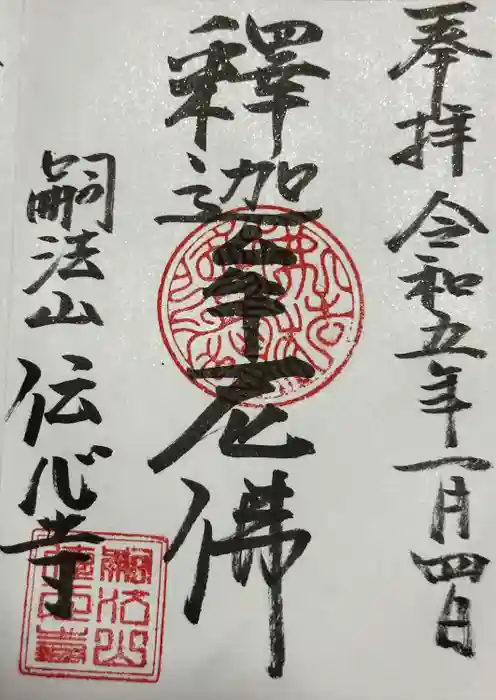 奉拝 令和五年一月四日
釋迦牟尼佛
嗣法山 伝心寺